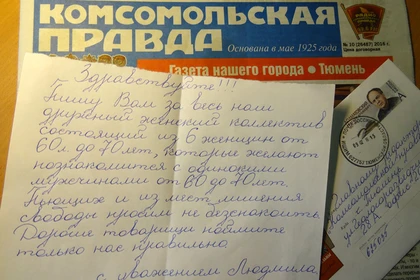 КОМСОМОЛЬСКАЯ
ПРАВДА
Основана в мае 1925 года
Газета нашего города • Тюмень
Здравствуйте!!!
Пишу Вам за весь наш
дружный женский коллектив
состоящий из 6 женщин от
60л до 70 лет, которые желают
познакомится с одинокими
мужчинами от 60 до 70 лет.
Пьющих и из мест лишения
свободы просим не беспокоить
Дорогие товарищи поймите
только нас правильно
с уважением Людмила